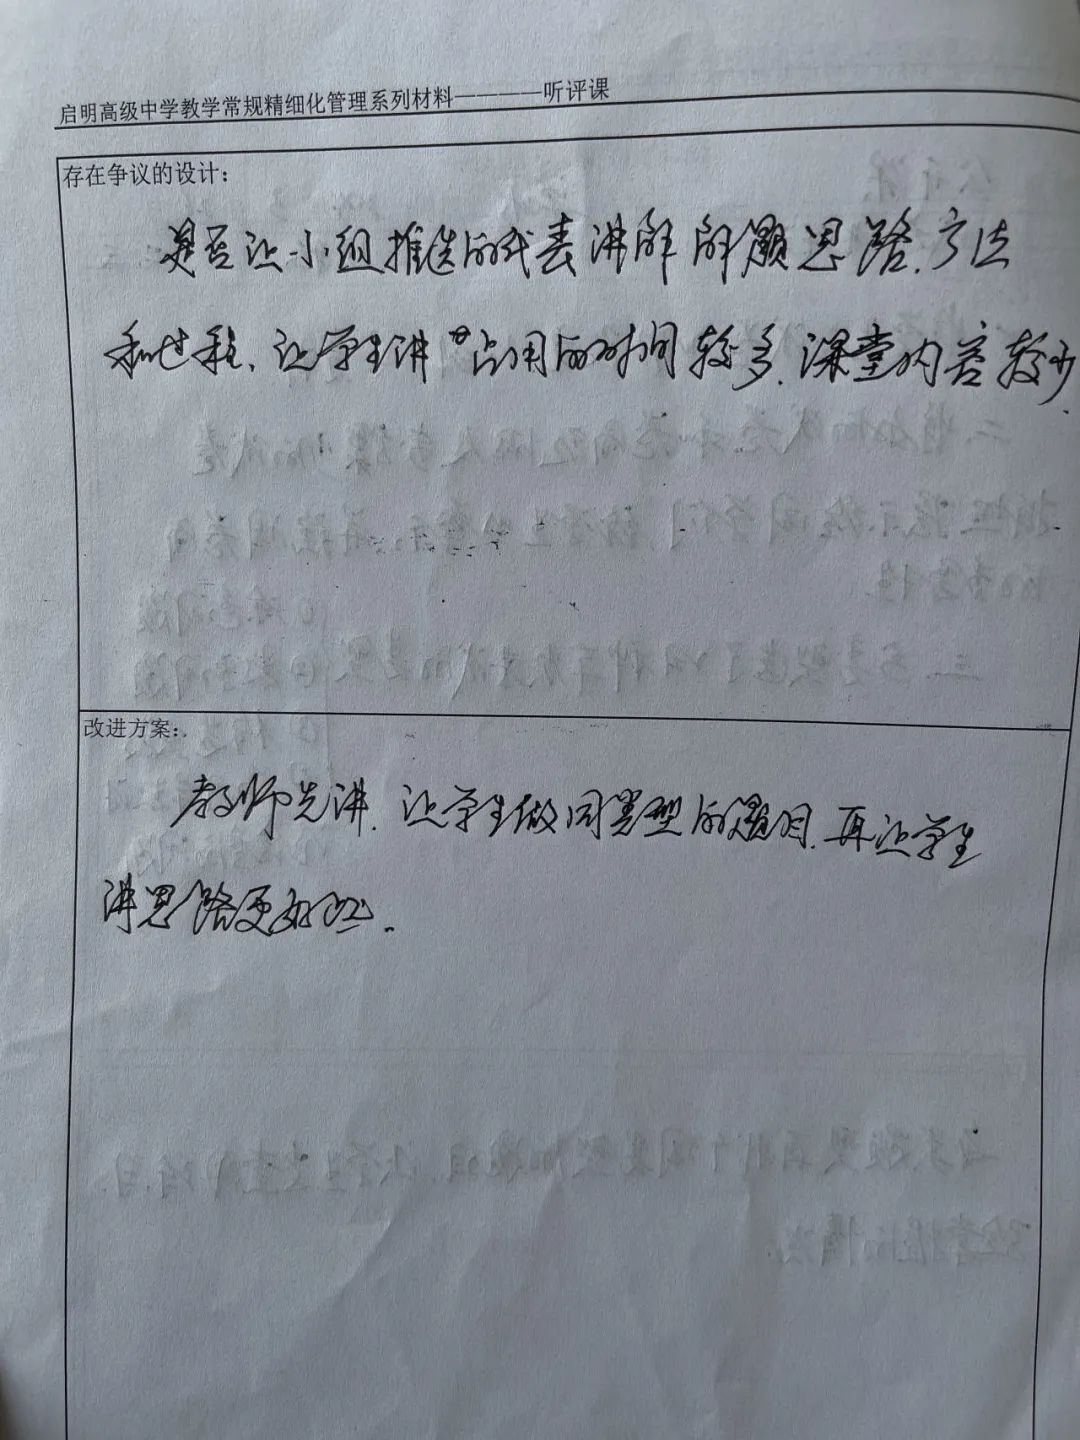 启明高级中学教学常规精细化管理系列材料————听评课
存在争议的设计：
是否让小组推选的代表讲解解题思路、方法
和过程、让学生讲占用的时间较多、课堂内容较少.
改进方案：
教师先讲、让学生做同类型的题目、再让学生
讲思路更好些.